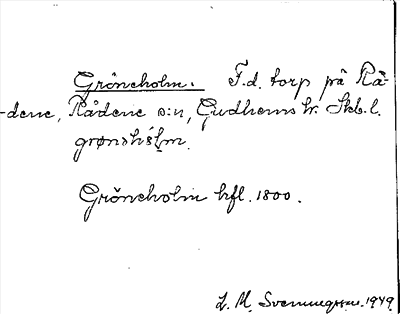 Gröneholm. F.d. torp på Rå-
-dene, Rådene s:n, Gudhems hr. Skb. l.
grønshólm.
Gröneholm hfl. 1800.
L. M. Svenungsson. 1949.